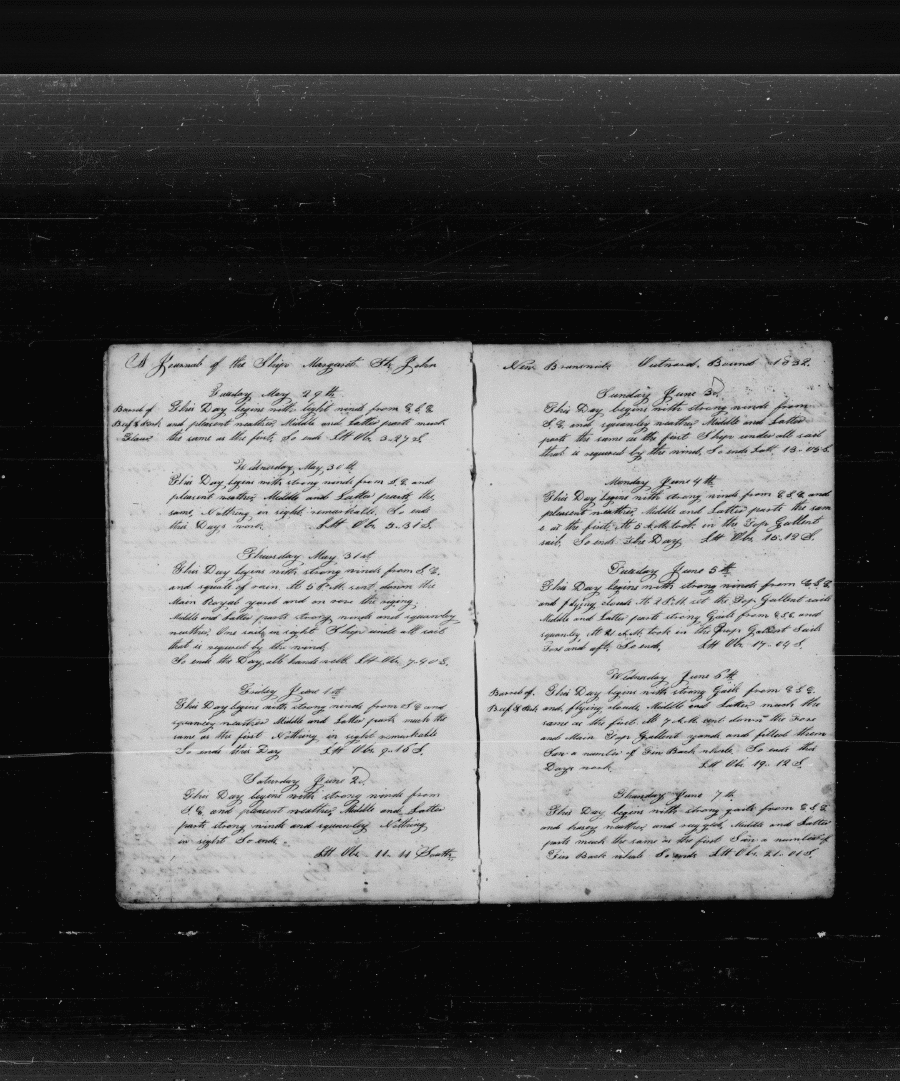 A Journal of the Ship Margaret St. John
Tuesday May 29th
Barrel of
Beef & Pork
This Day begins with light winds from E.S.E
and pleasent weather, Middle and Latter parts much
the same as the first, So ends Ltt Ob. 3-27 S.
Wednesday May 30th
This Day begins with strong winds from S.E and
pleasent weather Middle and Latter parts the
same, Nothing in sight remarkable. So ends
this Days work. Ltt Ob. 5-31 S.
Thursday May 31st
This Day begins with strong winds from S.E.
and squalls of rain. At 5 P.M. sent down the
Main Royal yard and on rose the riging,
Middle and Latter parts strong winds and squawley
weather. One sail in sight. Ship under all sail
that is required by the wind.
So ends the Day, all hands well. Ltt Ob. 7-40 S.
Friday June 1th
This Day begins with strong winds from S.E and
squawley weather Middle and Latter parts much the
same as the first Nothing in sight remarkable
So ends this Day Ltt Ob. 9-15 S.
Saturday June 2D
This Day begins with strong winds from
S.E. and pleasent weather, Middle and Latter
parts strong winds and squawley Nothing
in sight So ends
Ltt Ob. 11-11 South.
New Brunswick Outward Bound 1832.
Sunday June 3D
This Day begins with strong winds from
S.E and squawley weather Middle and Latter
parts the same as the first Ship under all sail
that is required by the wind, So ends Latt. 13-05 S.
Monday June 4th
This Day begins with strong winds from E.S.E and
pleasent weather, Middle and Latter parts the sam
e as the first. At 5 A.M. took in the Top Gallent
sail. So ends This Day Ltt Ob. 15-12 S.
Tuesday June 5th
This Day begins with strong winds from E.S.E
and flying clouds At 2 P.M. set the Top Gallent sails
Middle and Latter parts strong Gails from E.S.E and
squawley At 2 A.M. took in the Top Gallent Sails
Fore and aft, So ends, Ltt Ob. 17-04 S.
Wednesday June 6th
Barrel of
Beef & Pork
This Day begins with strong Gails from E.S.E.
and flying clouds, Middle and Latter much the
same as the first. At 7 A.M. sent down the Fore
and Main Top Gallent yards and filled them
Saw a number of Fin Back whales. So ends this
Days work. Ltt Ob. 19-12 S.
Thursday June 7th
This Day begins with strong gails from E.S.E
and hasey weather, and rugged, Middle and Latter
parts much the same as the first Saw a number of
Fin Back whales So ends Ltt Ob. 21-01 S.